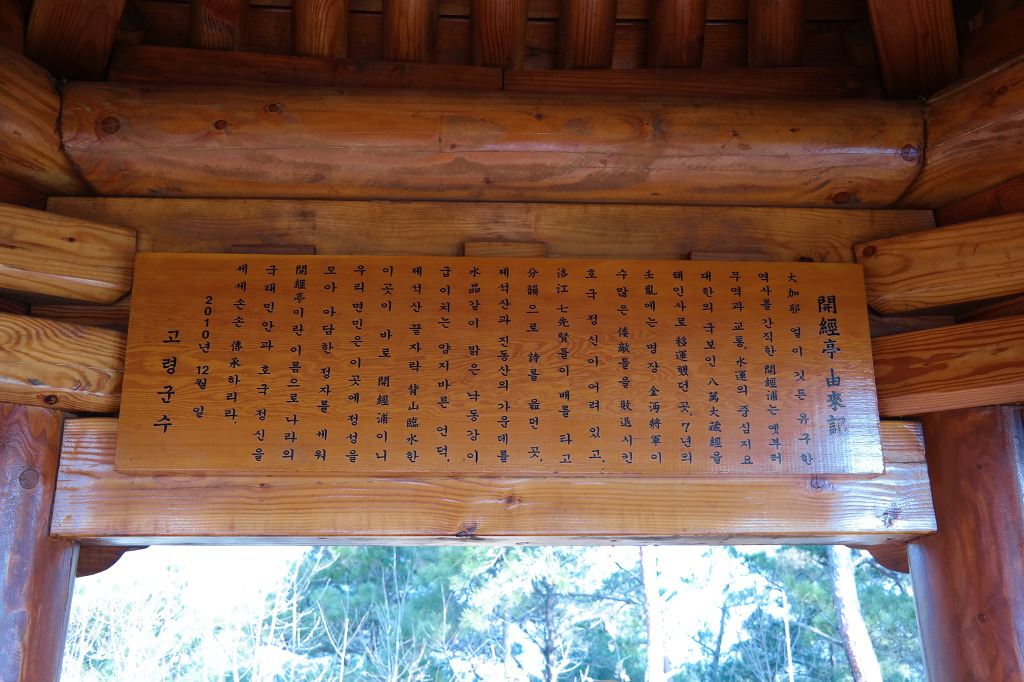 開經亭 由來記
大加耶 얼이 깃든 유구한
역사를 간직한 開經浦는 옛부터
무역과 교통, 水運의 중심지요
대한의 국보인 八萬大藏經을
해인사로 移運했던 곳, 7년의
壬亂에는 명장 金沔將軍이
수많은 倭敵들을 敗退시킨
호국정신이 어려 있고,
洛江 七先賢들이 배를 타고
分韻으로 詩를 읊던 곳,
제석산과 진동산의 가운데를
水晶같이 맑은 낙동강이
굽이치는 양지바른 언덕,
제석산 끝자락 背山臨水한
이곳이 바로 開經浦이니
우리 면민은 이곳에 정성을
모아 아담한 정자를 세워
開經亭이란 이름으로 나라의
국태민안과 호국정신을
세세손손 傳承하리라.
2010년 12월 일
고령군수